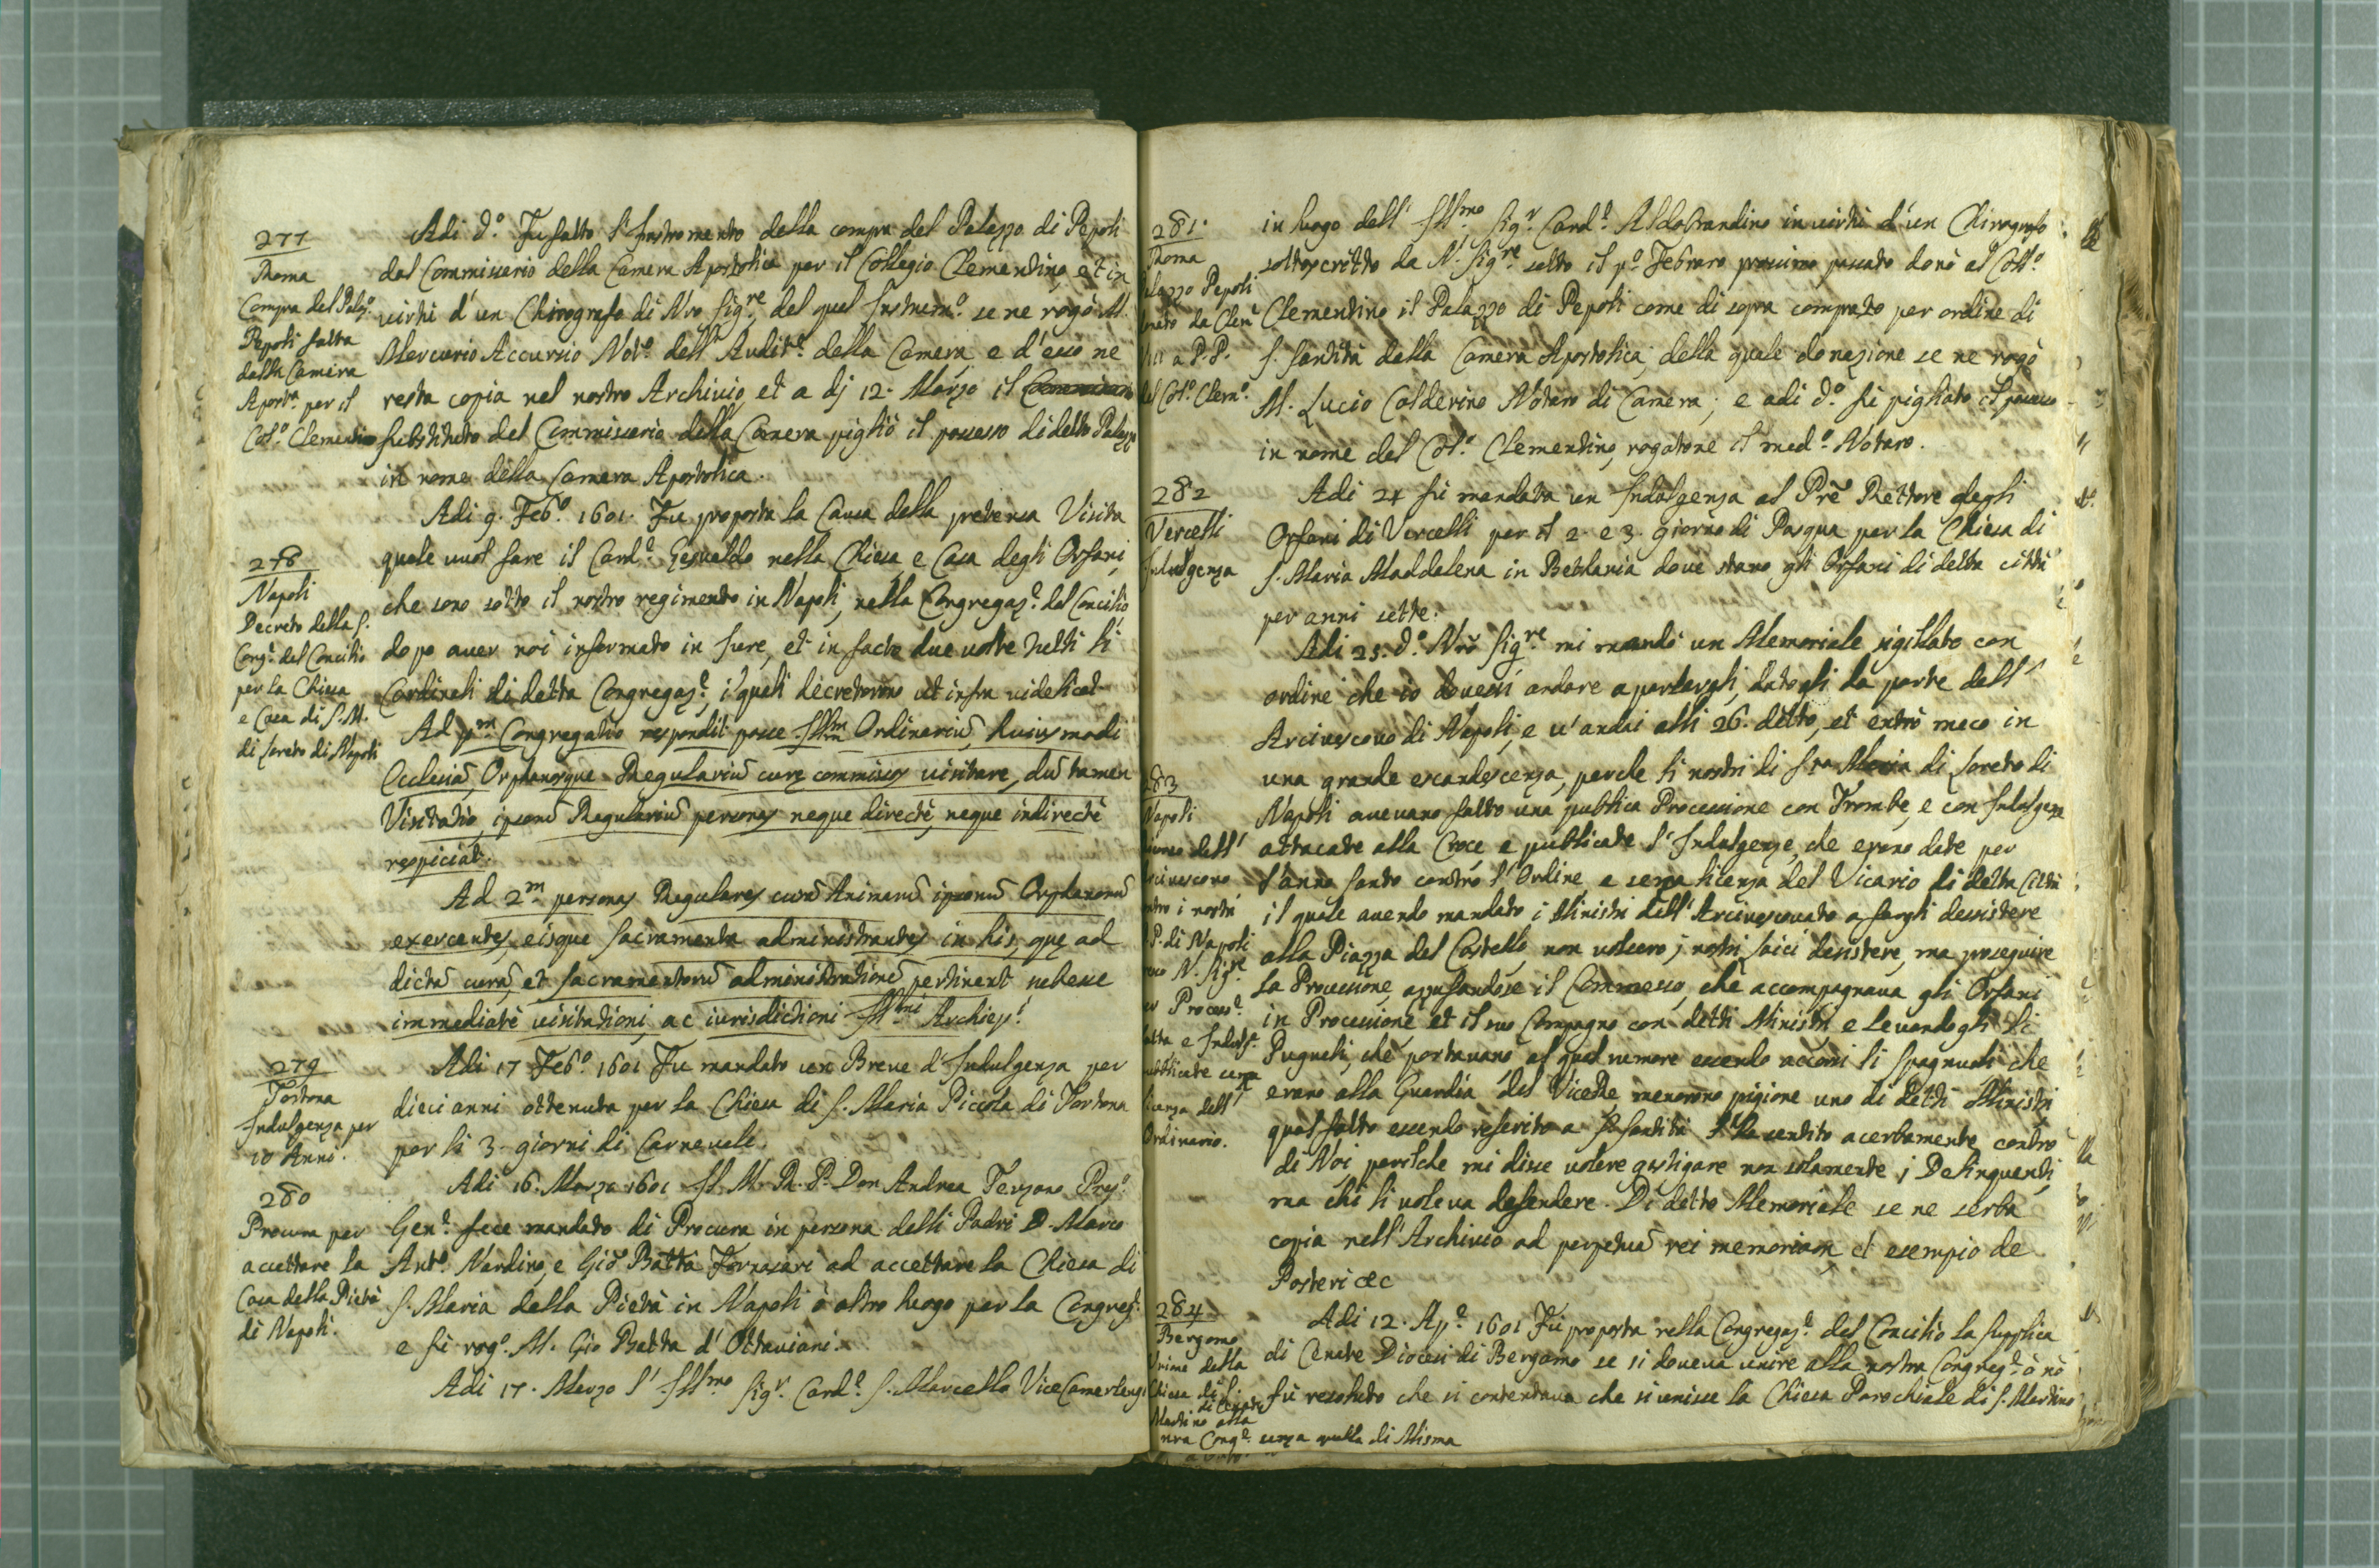 277
Roma
Compra del Palaz.º
Pepoli fatta
dalla Camera
Apost.ca per il
Col.º Clementino
Adi d.º Fu fatto l'Instromento della compra del Palazzo di Pepoli
dal Commissario della Camera Apostolica per il Collegio Clementino, et in
virtù d'un Chirografo di Nro Sig.re, del qual Instrum.º se ne rogò M.
Mercurio Accursio Not.º dell' Audit.e della Camera e d'esso ne
resta copia nel nostro Archivio, et a dj 12. Marzo il
substituto del Commissario della Camera pigliò il possesso di detto Palazzo
in nome della Camera Apostolica.
278
Napoli
Decreto della S.
Cong.e del Concilio
per la Chiesa
e Casa di S. M.
di Loreto di Napoli
Adi 9. Feb.º 1601. Fu proposta la Causa della pretensa Visita
quale vuol fare il Card.e Gesualdo nella Chiesa e Casa degli Orfani
che sono sotto il nostro regimento in Napoli, nella Congregaz.e del Concilio
dopo auer noi informato in Jure, et in facto due uolte tutti li
Cardinali di detta Congregaz.e, i quali decretorono ut infra uidelicet
Ad p.m Congregatio respondit posse Ill.m Ordinariũ, huiusmodi
Ecclesiã, Orphanosque Regulariũ curę commissos uisitare, dũ tamen
Visitatio, ipsorũ Regulariũ personas neque directè, neque indirectè
respiciat.
Ad 2.m personas Regulares curã Animarũ ipsorũ Orphanorũ
exercentes, eisque Sacramenta administrantes in his, quę ad
dictã curã, et Sacramentorũ administrationẽ pertinent subesse
immediatè uisitationi, ac iurisdictioni Ill.mi Archiep.i
279
Tortona
Indulgenza per
10 Anni.
Adi 17 Feb.º 1601 Fu mandato un Breue d'Indulgenza per
dieci anni ottenuta per la Chiesa di S. Maria Piccola di Tortona
per li 3. giorni di Carneuale.
280
Procura per
accettare la
Casa della Pietà
di Napoli.
Adi 16. Marzo 1601 Il M. R. P. Don Andrea Terzano Prep.º
Gen.e fece mandato di Procura in persona delli Padri D. Marco
Ant.º Nardino, e Giõ Batta Fornasari ad accettare la Chiesa di
S. Maria della Pietà in Napoli ò altro luogo per la Congreg.e
e fù rog.º M. Gio Batta d'Ottauiani.
Adi 17. Marzo l' Ill.mo Sig.r Card.e S. Marcello ViceCamerlengo
281.
Roma
alazzo Pepoli
onato da Clem.e
VIII a P.P.
el Col.º Clem.º
in luogo dell' Ill.mo Sig.r Card.e Aldobrandino in uirtù d'un Chirografo
sottoscritto da N. Sig.re sotto il p.º Febraro prossimo passato donò al Coll.º
Clementino il Palazzo di Pepoli come di sopra comprato per ordine di
S. Santità della Camera Apostolica; della quale donazione se ne rogò
M. Lucio Calderino Notaro di Camera; e adi d.º fù pigliato il possesso
in nome del Col.º Clementino, rogatone il med.º Notaro.
282
Vercelli
Indulgenza
Adi 24 fù mandata un Indulgenza al Prẽ Rettore degli
Orfani di Vercelli per il 2. e 3. giorno di Pasqua per la Chiesa di
S. Maria Maddalena in Bettania doue stano gli Orfani di detta città
per anni sette.
283
Napoli
dell'
rciuescouo
ntro i nostri
P. di Napoli
N. Sig.re
er Process.e
atta e Indulg.e
ubblicate senza
licenza dell'
Ordinario.
Adi 25. d.º Nrõ Sig.re mi mandò un Memoriale sigillato con
ordine che io douessi andare a parlargli, datogli da parte dell'
Arciuescouo di Napoli, e u'andai alli 26. detto, et entrò meco in
una grande escandescenza, perche li nostri di S.ta Maria di Loreto di
Napoli aueuano fatto una publica Processione con Trombe, e con Indulgenze
attacate alla Croce, e publicate l'Indulgenze, che erano date per
l'anno Santo contro l'Ordine, e senza licenza del Vicario di detta Città
il quale auendo mandato i Ministri dell'Arciuescouato a fargli desistere
alla Piazza del Castello, non uolsero j nostri laici desistere, ma proseguire
la Processione, azzufandosi il Commesso, che accompagnaua gli Orfani
in Processione et il suo Compagno con detti Ministri e leuandogli li
Pugnali, che portauano al qual rumore essendo accorsi li Spagnuoli che
erano alla Guardia del ViceRe menorono pigione uno di detti Ministri
qual fatto essendo riferito a S. Santità l'ha sentito acerbamente contro
di Noi perilche mi disse uolere gastigare non solamente j Delinquenti,
ma chi li uoleua defendere. Di detto Memoriale se ne serba
copia nell'Archiuio ad perpetuã rei memoriam et esempio de
Posteri &c
284
Bergomo
Vnione della
Chiesa di S.
di Cenate
Martino alla
nra Cong.e
Adi 12. Ap.e 1601 Fù proposta nella Congregaz.e del Concilio la supplica
di Cenate Diocesi di Bergamo se si doueua unire alla nostra Congreg.e ò nò
fù resoluto che si contentaua che si unisse la Chiesa Parochiale di S. Martino
senza quella di Misma